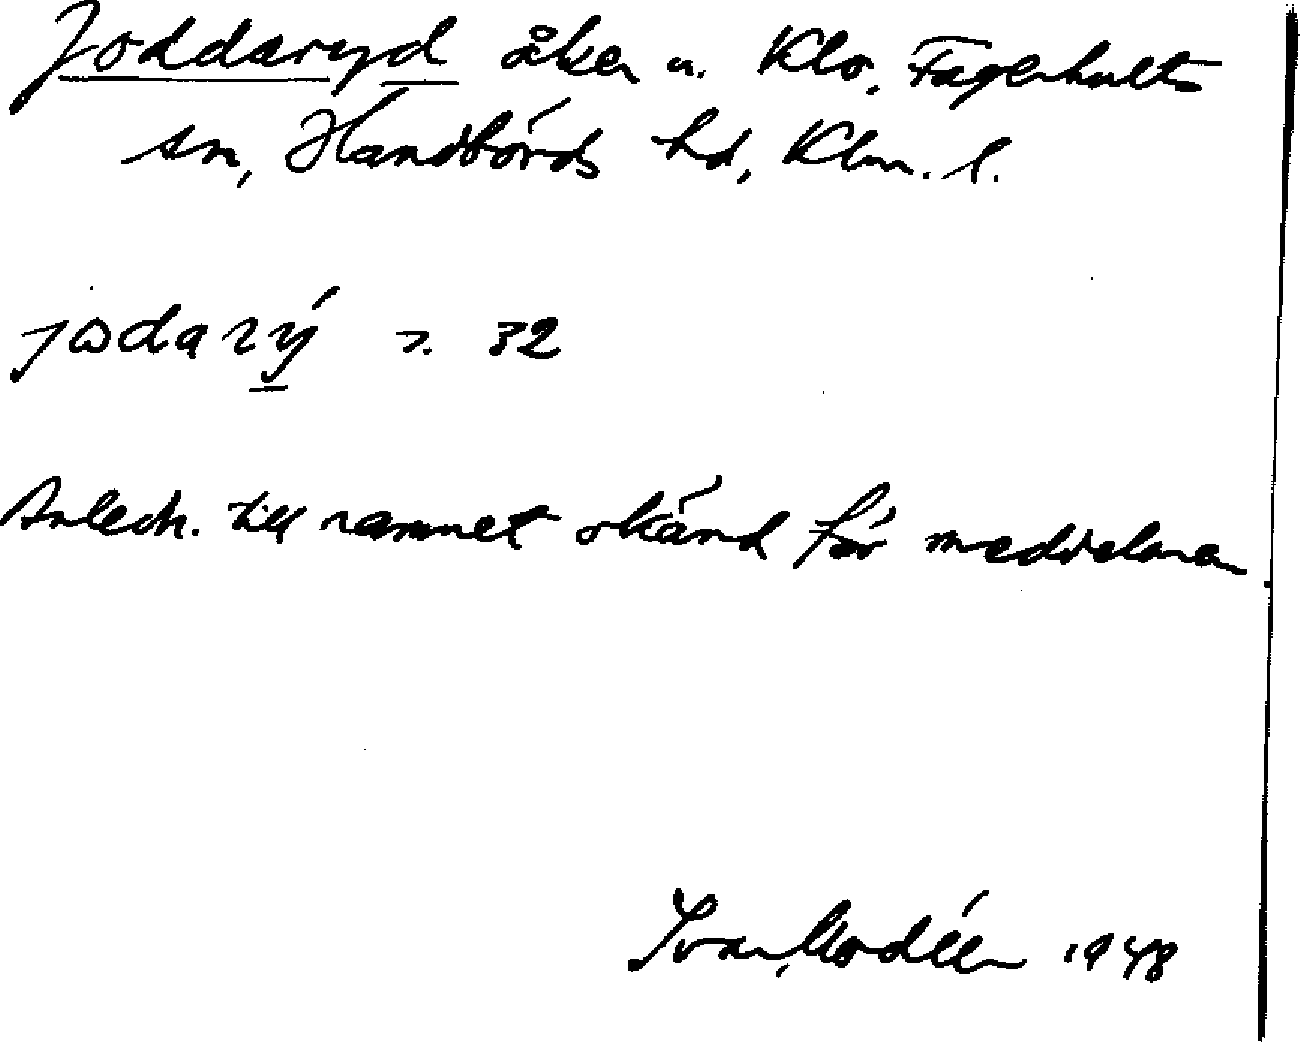 Joddaryd åker u. Klo, Fagerhults
sn, Handbörds hd, Klm. l.
jodarý s. 32
Anledn. till namnet okänd för meddelaren
Ivar Modéer 1948